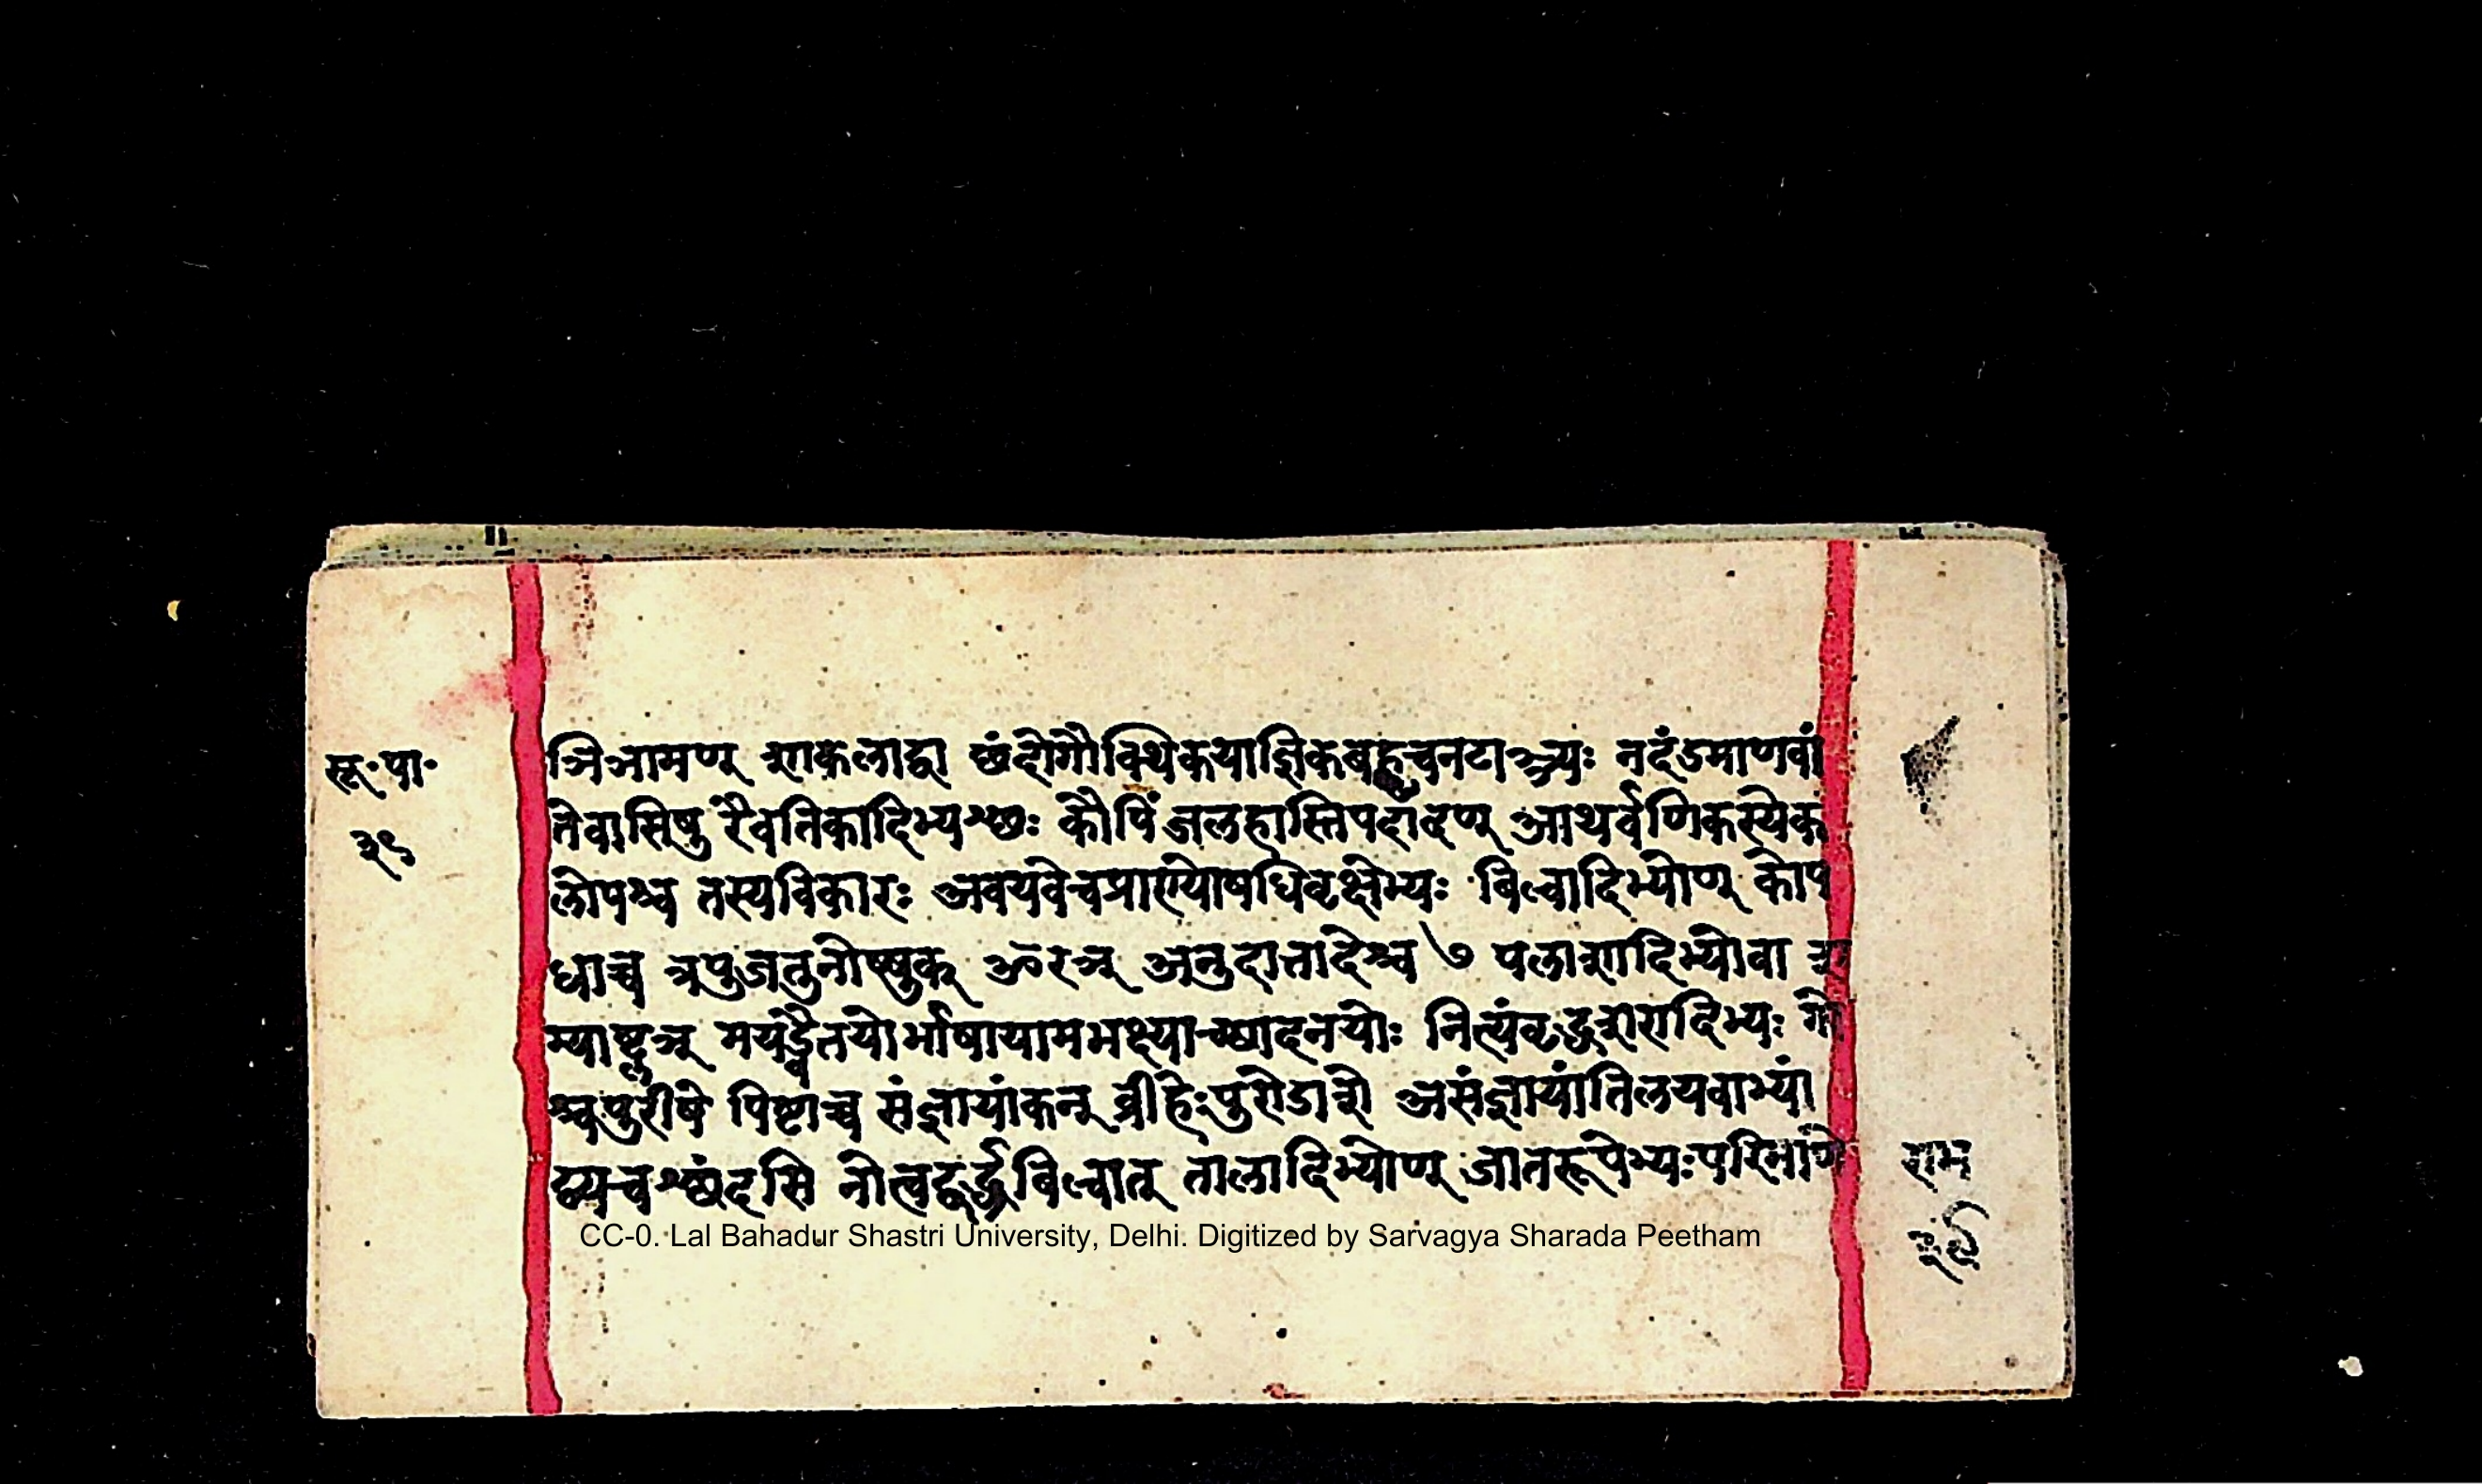 सू॰पा॰
३९
ञिञामण् शाकलाद्वा छंदोगौक्थिकयाज्ञिकबह्वृचनटाञ्ञ्यः नदंडमाणवां
तेवासिषु रैवतिकादिभ्यश्छः कौपिंजलहास्तिपदादण् आथर्वणिकस्येक
लोपश्च तस्यविकारः अवयवेचप्राण्योषधिवृक्षेभ्यः बिल्वादिभ्योण् कोप
धाच्च त्रपुजतुनोष्षुक् ओरञ् अनुदात्तादेश्च ७ पलाशादिभ्योवा श
म्याष्ट्लञ् मयड्वैतयोर्भाषायामभक्ष्याच्छादनयोः नित्यंवृद्धशरादिभ्यः गो
श्चपुरीषे पिष्टाच्च संज्ञायांकन् व्रीहेःपुरोडाशे असंज्ञायांतिलयवाभ्यां
द्व्यचश्छंदसि नोत्वद्वर्द्ध्रबिल्वात् तालादिभ्योण् जातरूपेभ्यःपरिमाणे
राम
३९
CC-0. Lal Bahadur Shastri University, Delhi. Digitized by Sarvagya Sharada Peetham